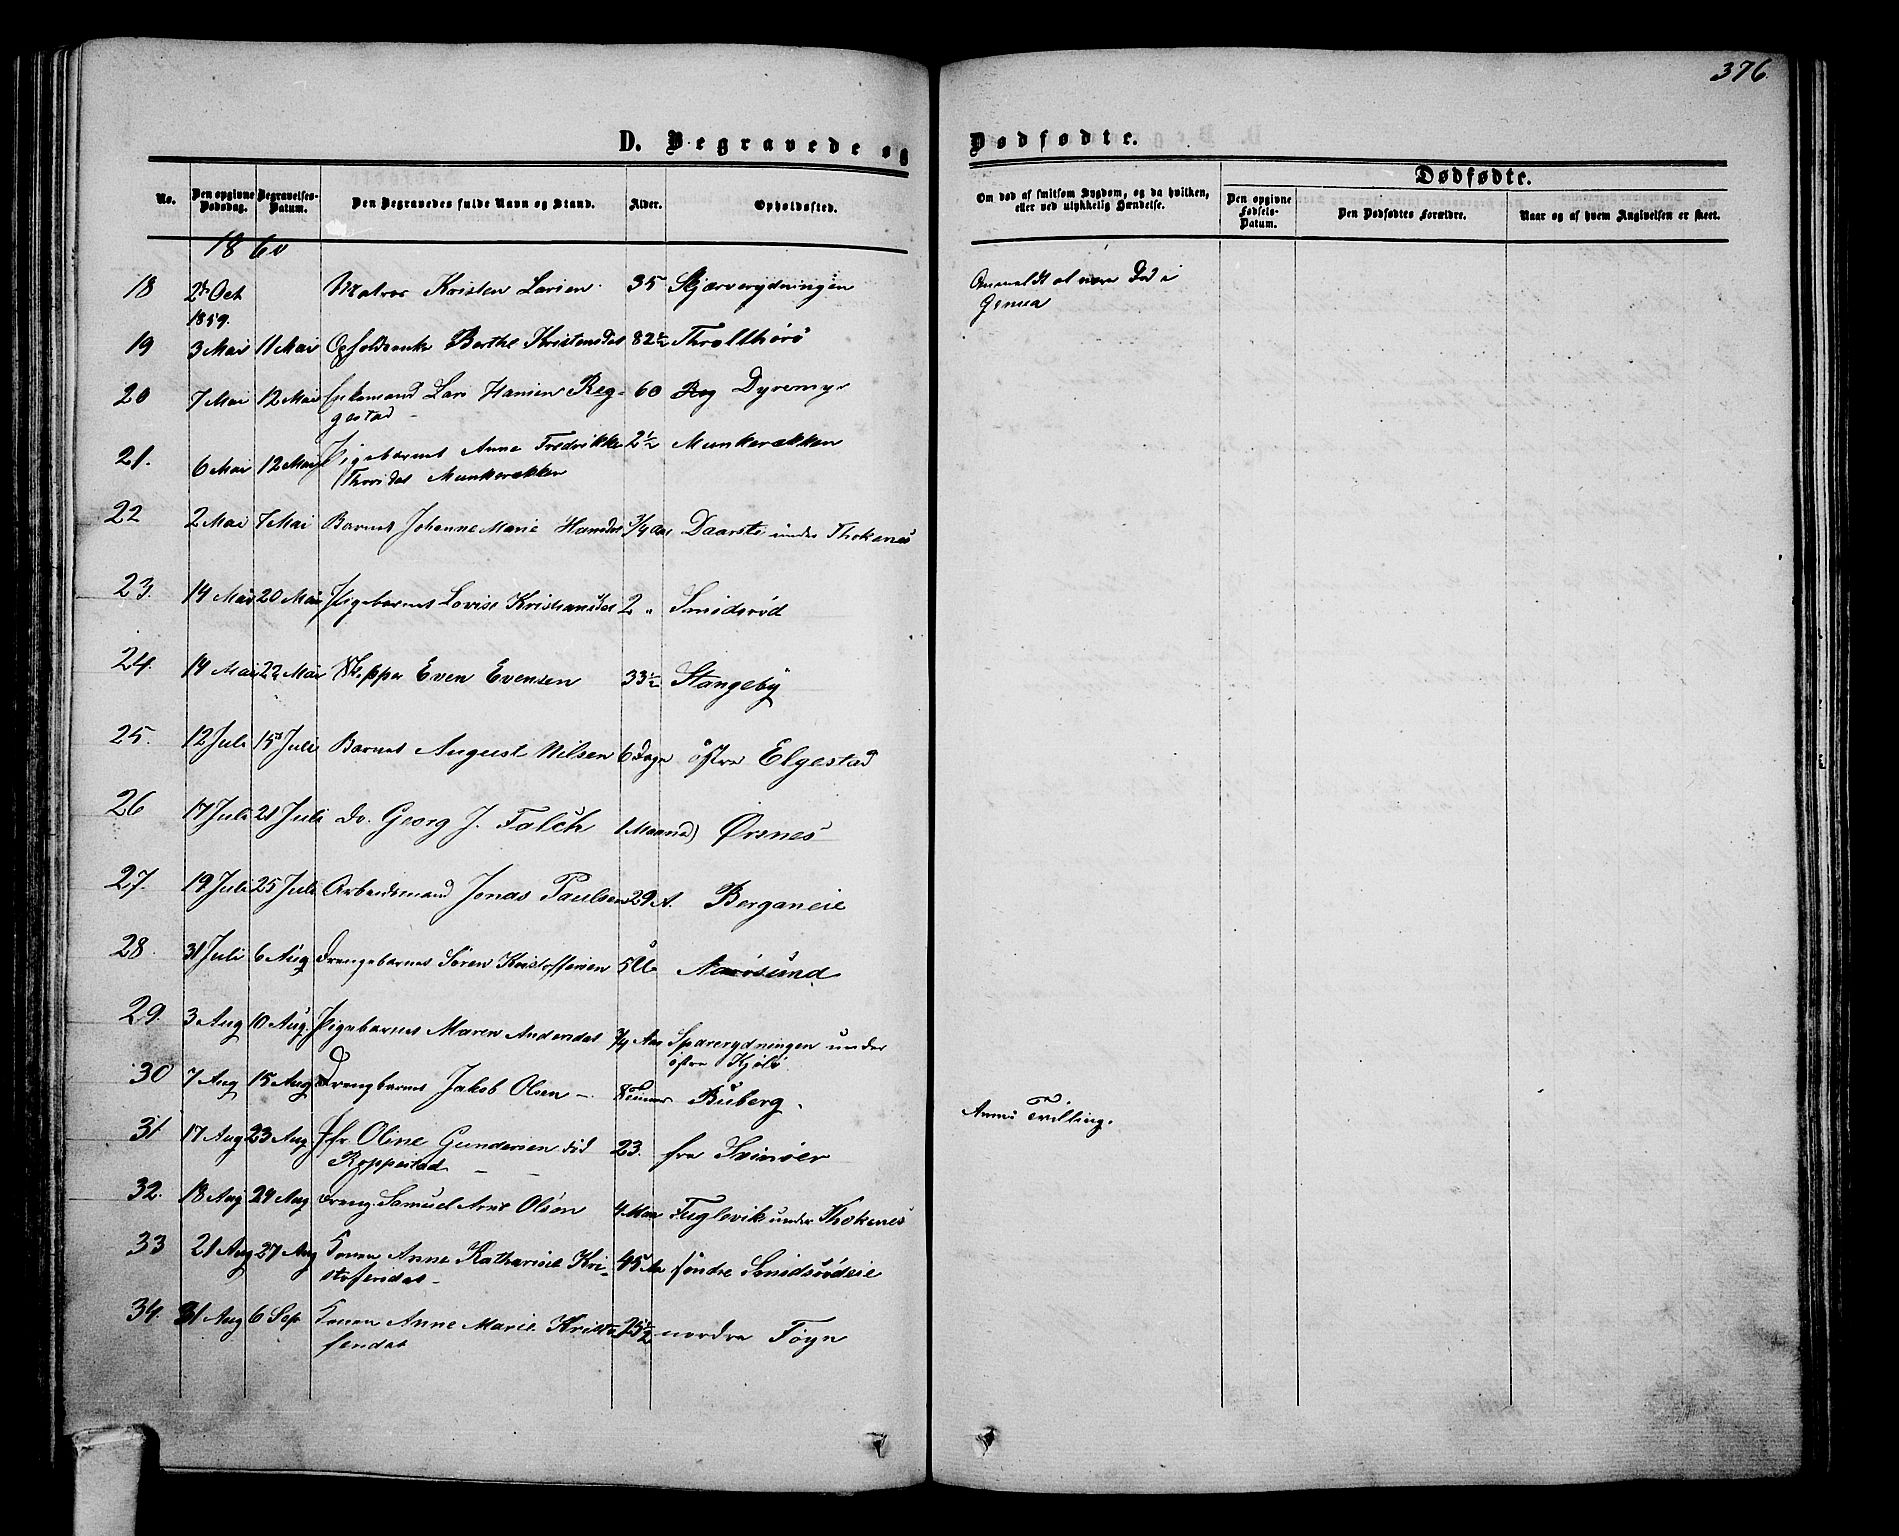 376
D. Begravede og Dødfødte.
No. Den opgivne Dødsdag. Begravelses-Datum. Den Begravedes fulde Navn og Stand. Alder. Opholdssted. Om død af smitsom Sygdom, og da hvilken, eller ved ulykkelig Hændelse. Dødfødte. Den opgivne Fødsels-Datum. Den Dødfødtes Forældre. Naar og af hvem Angivelsen er skeet.
1860
18 Oct Matros Kristen Larsen 35 Skjærverydningen Anmeldt at være Død i
1859. Genua
19 3 Mai 11 Mai Berthe Kristensdat 82½
20 7 Mai 12 Mai Enkemand Lars Hansen Reg- 60 Dyremyr
gestad
21. 6 Mai 12 Mai Pigebarnet Anne Fredrikke 2½ Munkerækken
Thorsdat Munkerækken
22 2 Mai 7 Mai Barnet Johanne Marie Hansdat ¾ Aar under Thokenes
23. 14 Mai 20 Mai Pigebarnet Lovise Kristiansdat 2 " Smidsrød
24. 14 Mai 22 Mai Skipper Even Evensen 33½ Stangeby
25. 12 Juli 15 Juli Barnet August Nilsen 6 Dage østre Elgestad
26 17 Juli 21 Juli do. Georg J. Falch 1 Maaned Ørsnes
27. 19 Juli 25 Juli Arbeidsmand Jonas Paulsen 29 A. Berganeie
28. 31 Juli 6 Aug Drengebarnet Søren Kristoffersen 5 U. Aarøsund
29. 3 Aug 10 Aug. Pigebarnet Maren Andersdat ¾ Aar Sparerydningen under
østre Kjølø
30 7 Aug 15 Aug Drengbarnet Jakob Olsen – 8 Timer Buberg. Tvilling.
31 17 Aug 23 Aug Oline Gundersen 23. fra Svinøer
Roppestad
32. 18 Aug 24 Aug Dreng. Samuel Olsen 4 Fuglevik under Thokenes
33 21 Aug 27 Aug Konen Anne Katharine Kri- 45 Aar søndre Smidsrødeie
stofersdat –
34. 31 Aug 6 Sep Konen Anne Marie Kristo- nordre Føyn
fersdat